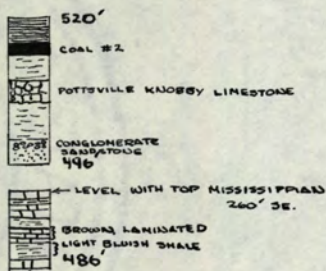 520'
COAL #2
POTTSVILLE KNOBBY LIMESTONE
CONGLOMERATE
SANDSTONE
496'
LEVEL WITH TOP MISSISSIPPIAN
260' SE.
BROWN, LAMINATED
LIGHT BLUISH SHALE
486'